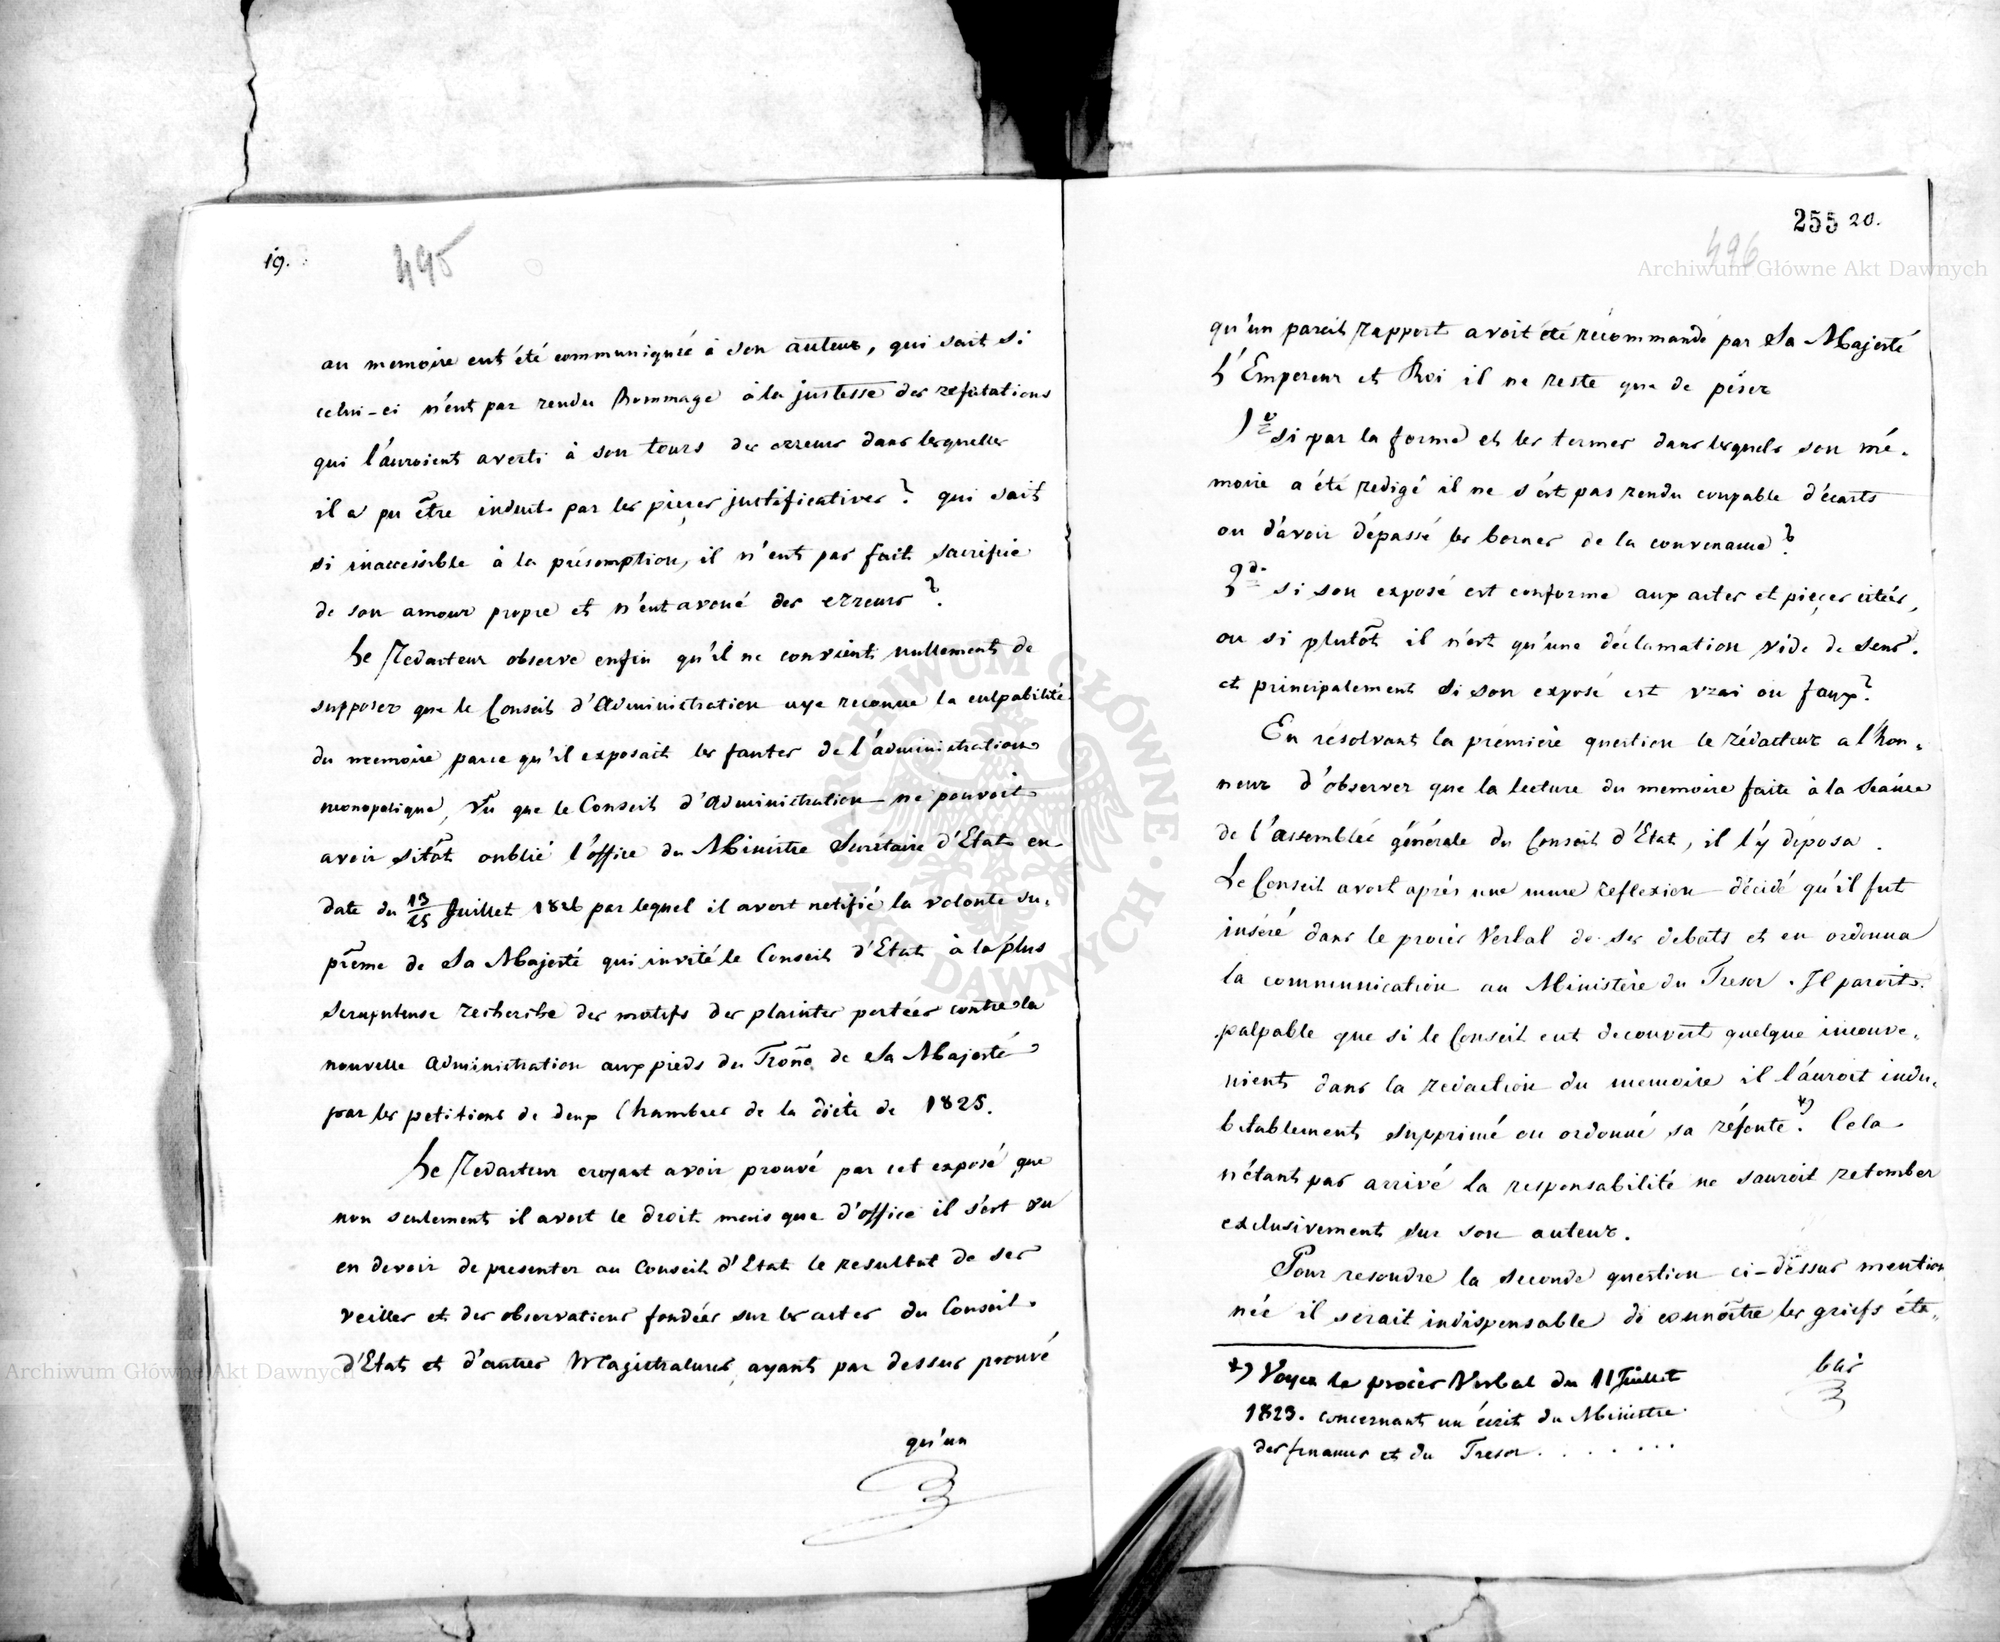 19.
495
au memoire eut été communiqué à son auteur, qui sait si
celui-ci n'eut pas rendu hommage à la justesse des refutations
qui l'auroient averti à son tours des erreurs dans lesquelles
il a pu être induit par les pieçes justificatives? qui sait
si inaccessible à la présomption, il n'eut pas fait sacrifice
de son amour propre et n'eut avoué des erreurs?
Le Redacteur observe enfin qu'il ne convient nullement de
supposer que le Conseil d'Administration aye reconnu la culpabilité
du memoire parce qu'il exposait les fautes de l'administration
monopolique, vu que le Conseil d'Administration ne pouvoit
avoir sitôt oublié l'office du Ministre Secrétaire d'Etat en
date du 13/25 Juillet 1826 par lequel il avoit notifié la volonte su-
prême de Sa Majesté qui invité le Conseil d'Etat à la plus
scrupuleuse recherche des motifs des plaintes portées contre la
nouvelle Administration aux pieds du Trône de Sa Majesté
par les petitions de deux Chambres de la diète de 1825.
Le Redacteur croyant avoir prouvé par cet exposé que
non seulement il avoit le droit mais que d'office il s'est vu
en devoir de presenter au Conseil d'Etat le resultat de ses
veilles et des observations fondées sur les actes du Conseil
d'Etat et d'autres Magistratures, ayant par dessus prouvé
qu'un
255 20.
496
qu'un pareil rapport avoit été récommandé par Sa Majesté
L'Empereur et Roi il ne reste que de péser
1º si par la forme et les termes dans lesquels son mé-
moire a été redigé il ne s'est pas rendu coupable d'écarts
ou d'avoir dépassé les bornes de la convenance?
2d. si son exposé est conforme aux actes et pieçes citées,
ou si plutôt il n'est qu'une déclamation vide de sens.
et principalement si son exposé est vrai ou faux?
En résolvant la prémière question le rédacteur a l'hon-
neur d'observer que la lecture du memoire faite à la Séance
de l'assemblée générale du Conseil d'Etat, il l'y déposa.
Le Conseil avoit après une mure reflexion décidé qu'il fut
inséré dans le procès Verbal de ses debats et en ordonna
la communication au Ministère du Tresor. Il paroit
palpable que si le Conseil eut decouvert quelque inconve-
nients dans la redaction du memoire il l'auroit indu-
bitablement supprimé ou ordonné sa réfonte. *) Cela
n'étant pas arrivé la responsabilité ne sauroit retomber
exclusivement sur son auteur.
Pour resoudre la seconde question ci-dessus mention
née il serait indispensable de connoître les griefs éta-
blis
*) Voyez le procès Verbal du 11 Juillet
1823. concernant un écrit du Ministre
des finances et du Tresor . . . . . . .
Archiwum Główne Akt Dawnych
Archiwum Główne Akt Dawnych
ARCHIWUM GŁÓWNE AKT DAWNYCH